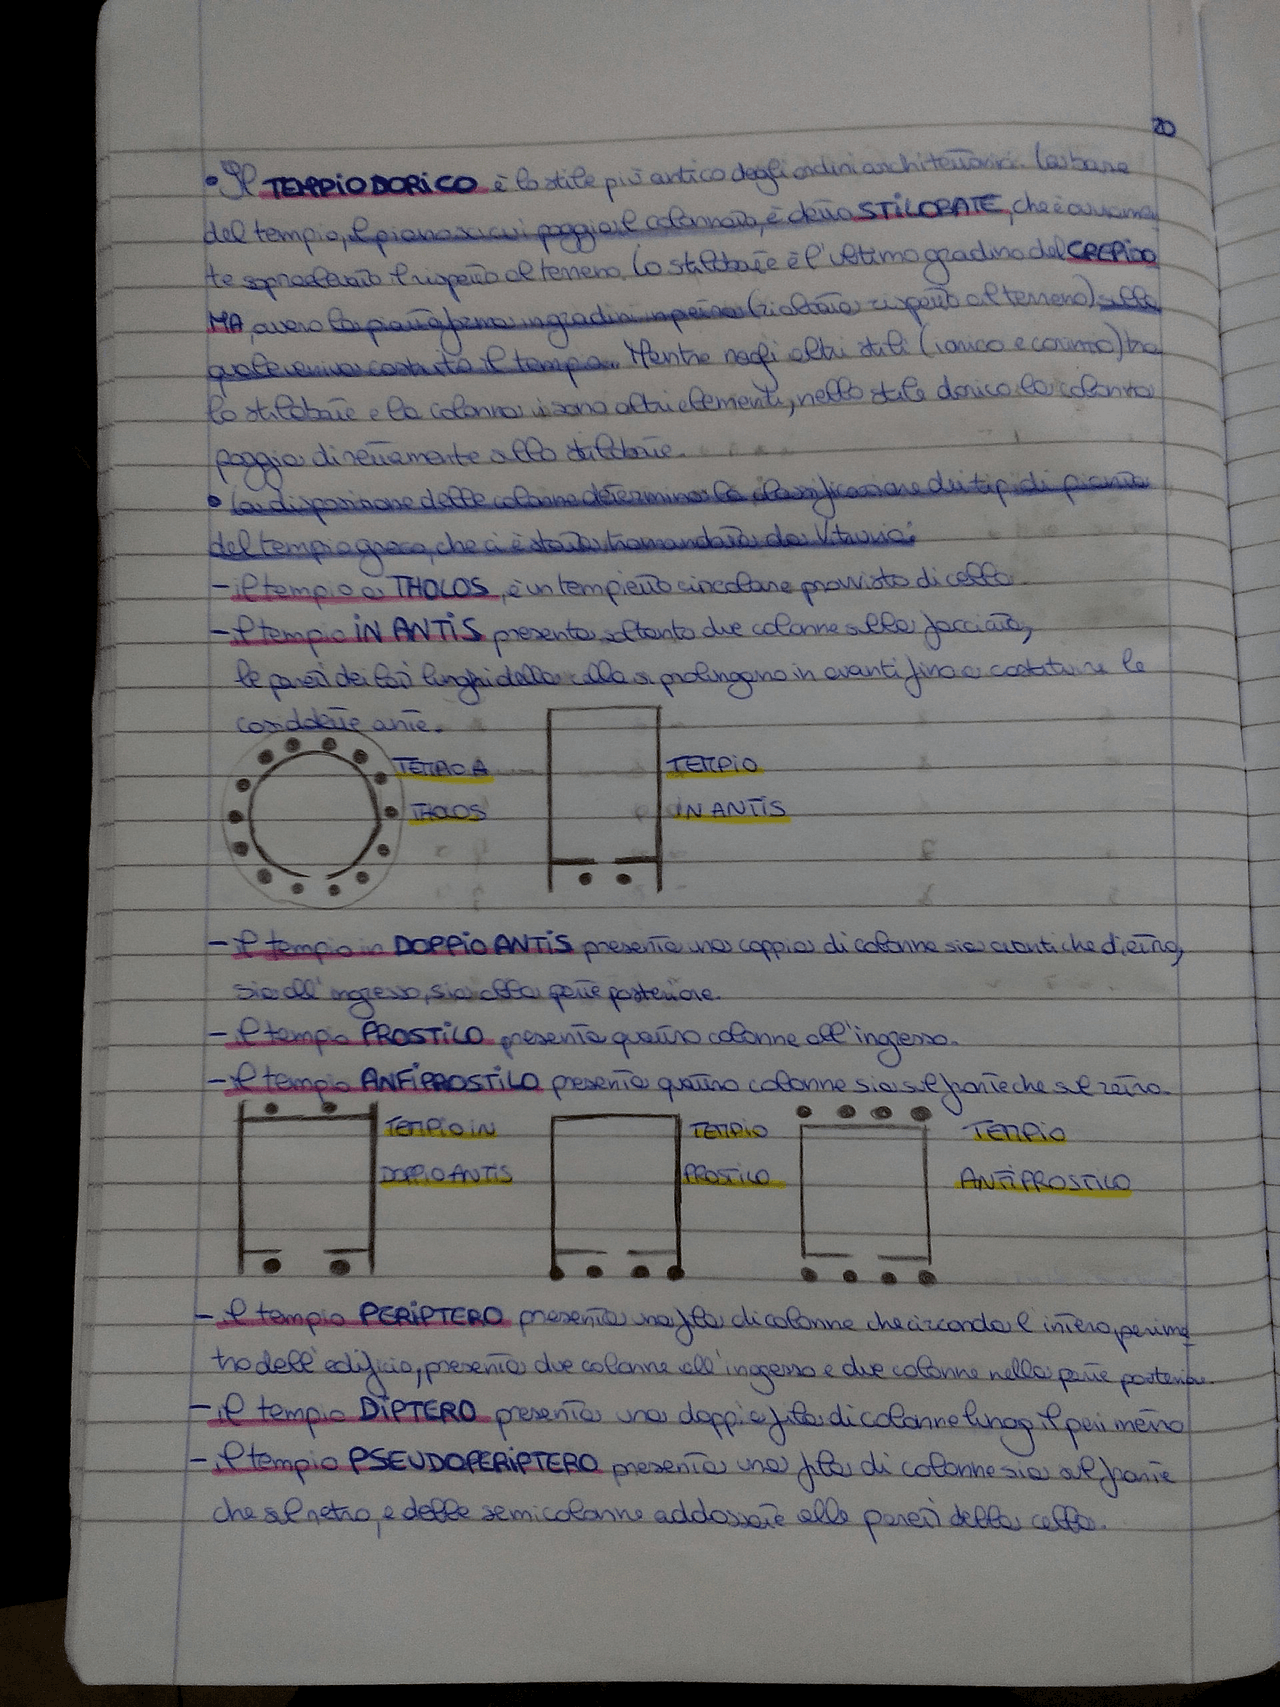 20
• Il TEMPIO DORICO è lo stile più antico degli ordini architettonici. La base
del tempio, il piano su cui poggia il colonnato, è detto STILOBATE, che è ovviamen
te sopraelevato rispetto al terreno. Lo stilobate è l'ultimo gradino del CREPIDO
MA, ovvero la piattaforma in gradini in pietra (rialzata rispetto al terreno) sulla
quale veniva costruito il tempio. Mentre negli altri stili (ionico e corinzio) tra
lo stilobate e la colonna vi sono altri elementi, nello stile dorico la colonna
poggia direttamente allo stilobate.
• La disposizione delle colonne determina la classificazione dei tipi di pianta
del tempio greco, che ci è stata tramandata da Vitruvio:
- il tempio a THOLOS, è un tempietto circolare provvisto di cella
- il tempio IN ANTIS presenta soltanto due colonne sulla facciata,
le pareti dei lati lunghi della cella si prolungano in avanti fino a costituire le
cosiddette ante.
TEMPIO A
THOLOS
TEMPIO
IN ANTIS
- il tempio in DOPPIO ANTIS presenta una coppia di colonne sia avanti che dietro,
sia all'ingresso, sia alla parte posteriore.
- il tempio PROSTILO presenta quattro colonne all'ingresso.
- il tempio ANFIPROSTILO presenta quattro colonne sia sul fronte che sul retro.
TEMPIO IN
DOPPIO ANTIS
TEMPIO
PROSTILO
TEMPIO
ANTIPROSTILO
- il tempio PERIPTERO presenta una fila di colonne che circonda l'intero perime
tro dell'edificio, presenta due colonne all'ingresso e due colonne nella parte posteriore.
- il tempio DIPTERO presenta una doppia fila di colonne lungo il perimetro
- il tempio PSEUDOPERIPTERO presenta una fila di colonne sia sul fronte
che sul retro, e delle semicolonne addossate alle pareti della cella.